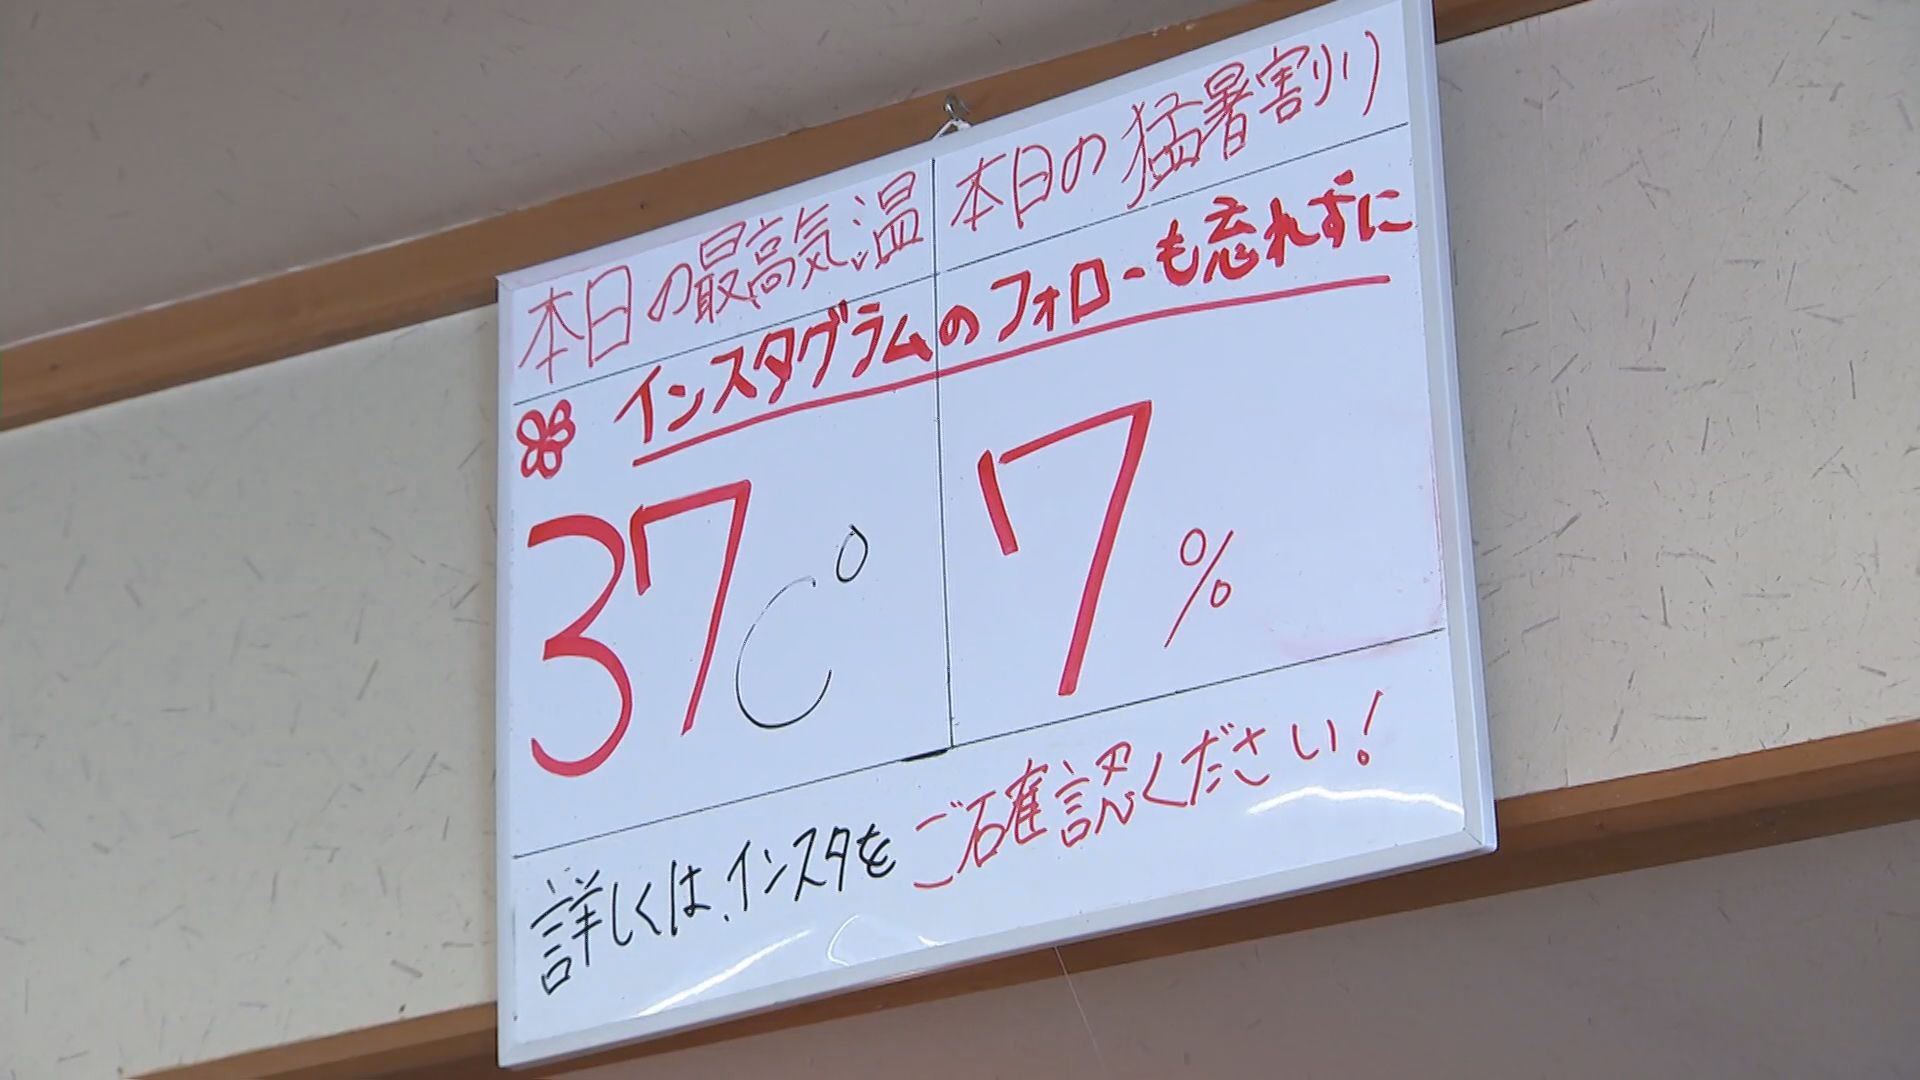 本日の最高気温
本日の猛暑割り
インスタグラムのフォローも忘れずに
37C°
7%
詳しくは、インスタをご確認ください!